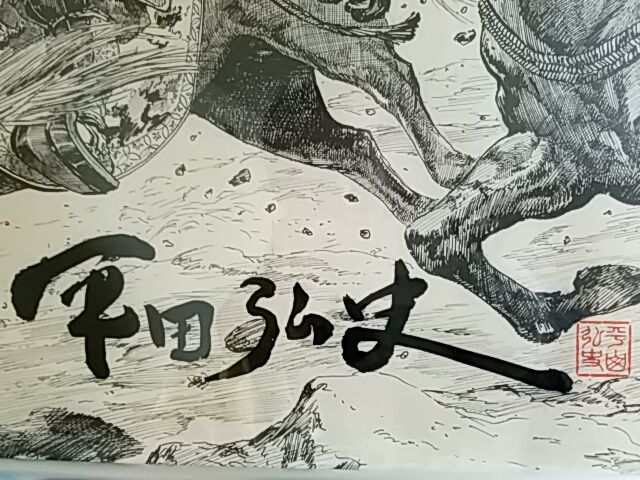 平田弘史
平田
弘史